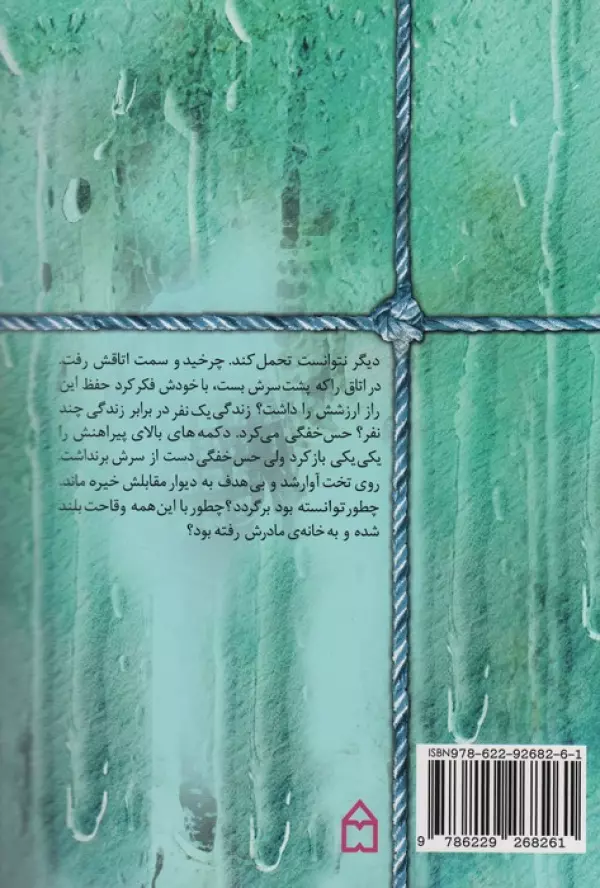 دیگر نتوانست تحمل کند. چرخید و سمت اتاقش رفت.
در اتاق را که پشت سرش بست، با خودش فکر کرد حفظ این
راز ارزشش را داشت؟ زندگی یک نفر در برابر زندگی چند
نفر؟ حس خفگی می‌کرد. دکمه‌های بالای پیراهنش را
یکی یکی باز کرد ولی حس خفگی دست از سرش برنداشت.
روی تخت آوار شد و بی هدف به دیوار مقابلش خیره ماند.
چطور توانسته بود برگردد؟ چطور با این همه وقاحت بلند
شده و به خانه‌ی مادرش رفته بود؟
ISBN978-622-92682-6-1
9 786229 268261